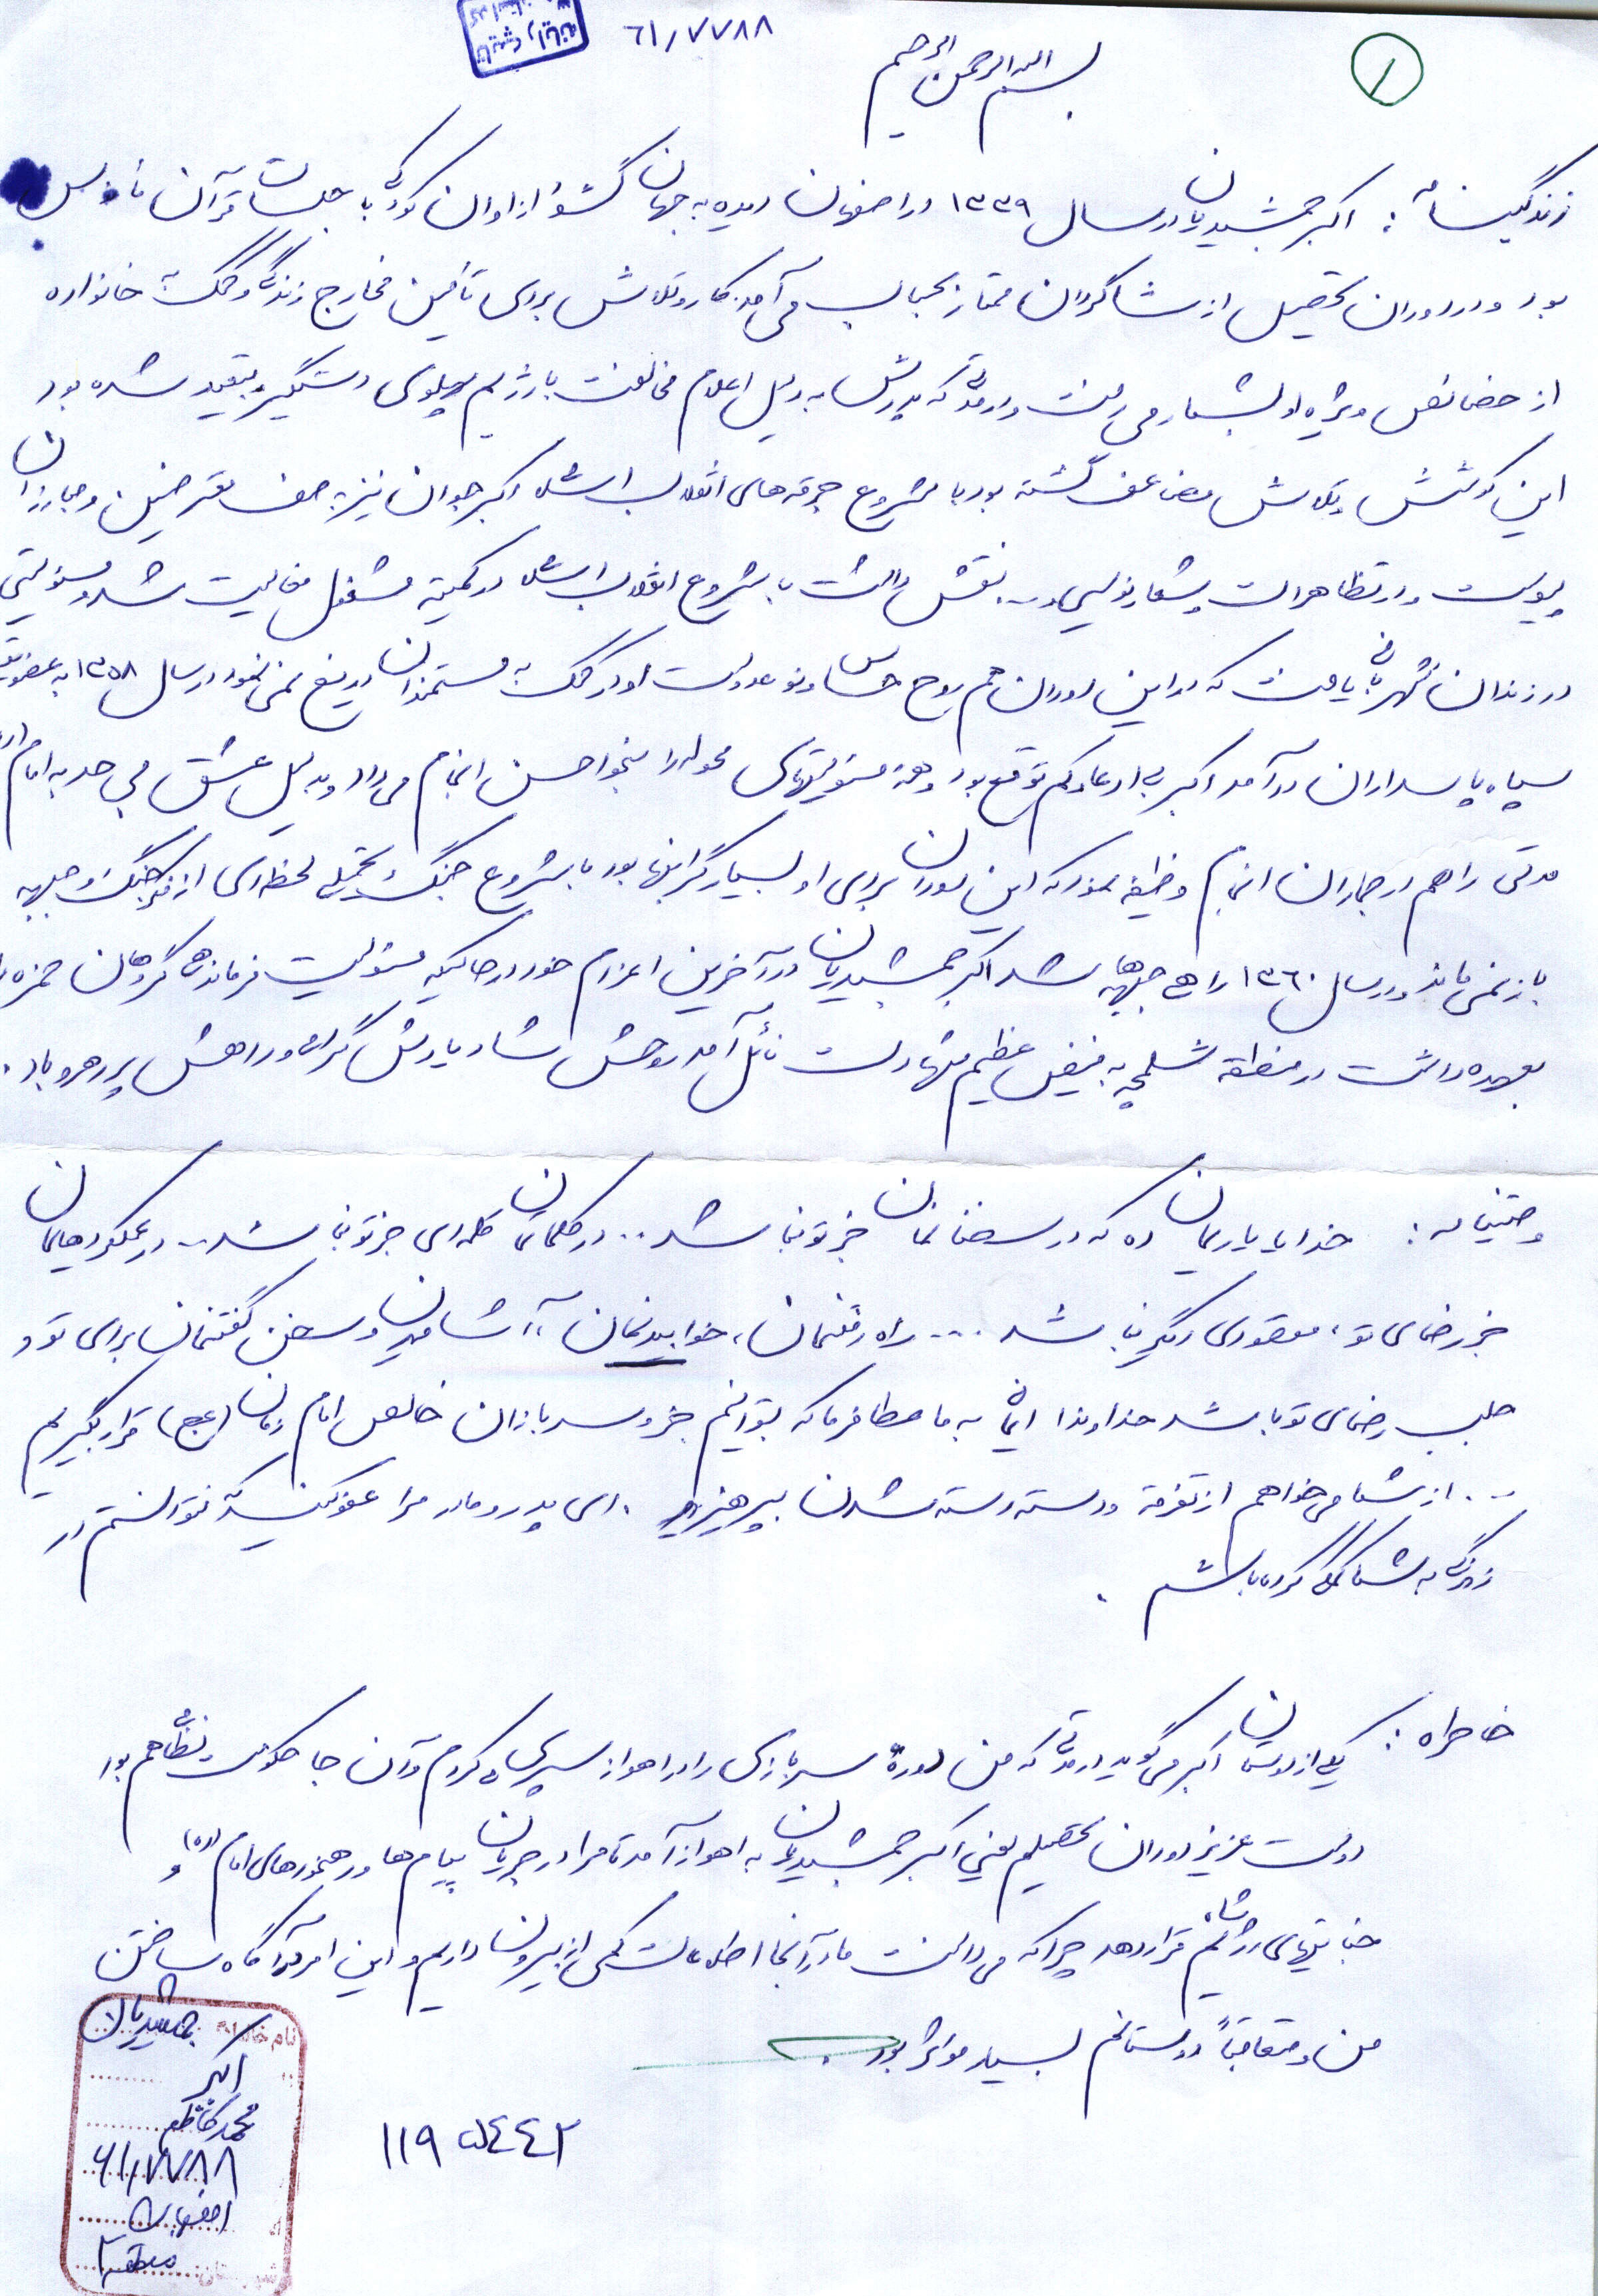 ۶۱/۷۷۸۸
بسم الله الرحمن الرحیم
۱
زندگینامه : اکبر جمشیدیان در سال ۱۳۳۹ در اصفهان دیده به جهان گشود از اوان کودکی با جلسات قرآن مأنوس
بود و در دوران تحصیل از شاگردان ممتاز بحساب می آمد. کار و تلاش برای تأمین مخارج زندگی و کمک به خانواده
از خصائص ویژه او بشمار می رفت و در مدتی که پدرش به دلیل اعلام مخالفت با رژیم پهلوی دستگیر و تبعید شده بود
این کوشش و تلاش مضاعف گشته بود با شروع جرقه های انقلاب اسلامی اکبر جوان نیز به صف معترضین و مبارزان
پیوست و در تظاهرات و شعارنویسی و... نقش داشت با شروع انقلاب اسلامی در کمیته مشغول فعالیت شد و مسئولیتی
در زندان شهربانی یافت که در این دوران هم روح حساس و نوعدوست او در کمک به مستمندان دریغ نمی نمود در سال ۱۳۵۸ به عضویت
سپاه پاسداران درآمد اکبر بی ادعا و کم توقع بود و همه مسئولیتهای محوله را بنحو احسن انجام می داد و بدلیل عشق بی حد به امام (ره)
مدتی را هم در جماران انجام وظیفه نمود که این دوران برای او بسیار گرانبها بود با شروع جنگ تحمیلی لحظه ای از فکر جنگ و جبهه
باز نمی ماند و در سال ۱۳۶۰ راهی جبهه ها شد اکبر جمشیدیان در آخرین اعزام خود در حالیکه مسئولیت فرماندهی گروهان حمزه را
بعهده داشت در منطقه شلمچه به فیض عظیم شهادت نائل آمد روحش شاد و یادش گرامی و راهش پر رهرو باد.
وصیتنامه : خدایا یاریمان ده که در سخنانمان جز تو نباشد .. در کلماتمان کلمه ای جز تو نباشد ... در عملکردهایمان
جز رضای تو، مقصودی دیگر نباشد .... راه رفتنمان، خوابیدنمان، آشامیدن و سخن گفتنمان برای تو و
جلب رضای تو باشد خداوندا ایمانی به ما عطا فرما که بتوانیم جزو سربازان خالص امام زمان (عج) قرار بگیریم
... از شما می خواهم از تفرقه و دسته دسته شدن بپرهیزید . ای پدر و مادر مرا عفو کنید که نتوانستم در
زندگی به شما کمک کرده باشم .
خاطره : یکی از دوستان اکبر می گوید در مدتی که من دوره سربازی را در اهواز سپری می کردم و آن جا حکومت نظامی هم بود
دوست عزیز دوران تحصیلم یعنی اکبر جمشیدیان به اهواز آمد تا مرا در جریان پیام ها و رهنمودهای امام (ره) و
جنایتهای رژیم شاه قرار دهد چرا که می دانست ما در آنجا اطلاعات کمی از بیرون داریم و این امر در آگاه ساختن
من و متعاقباً دوستانم بسیار موثر بود .
نام خانوادگی جمشیدیان
اکبر
محمد کاظم
۶۱/۷۷۸۸
اصفهان
منطقه ۲